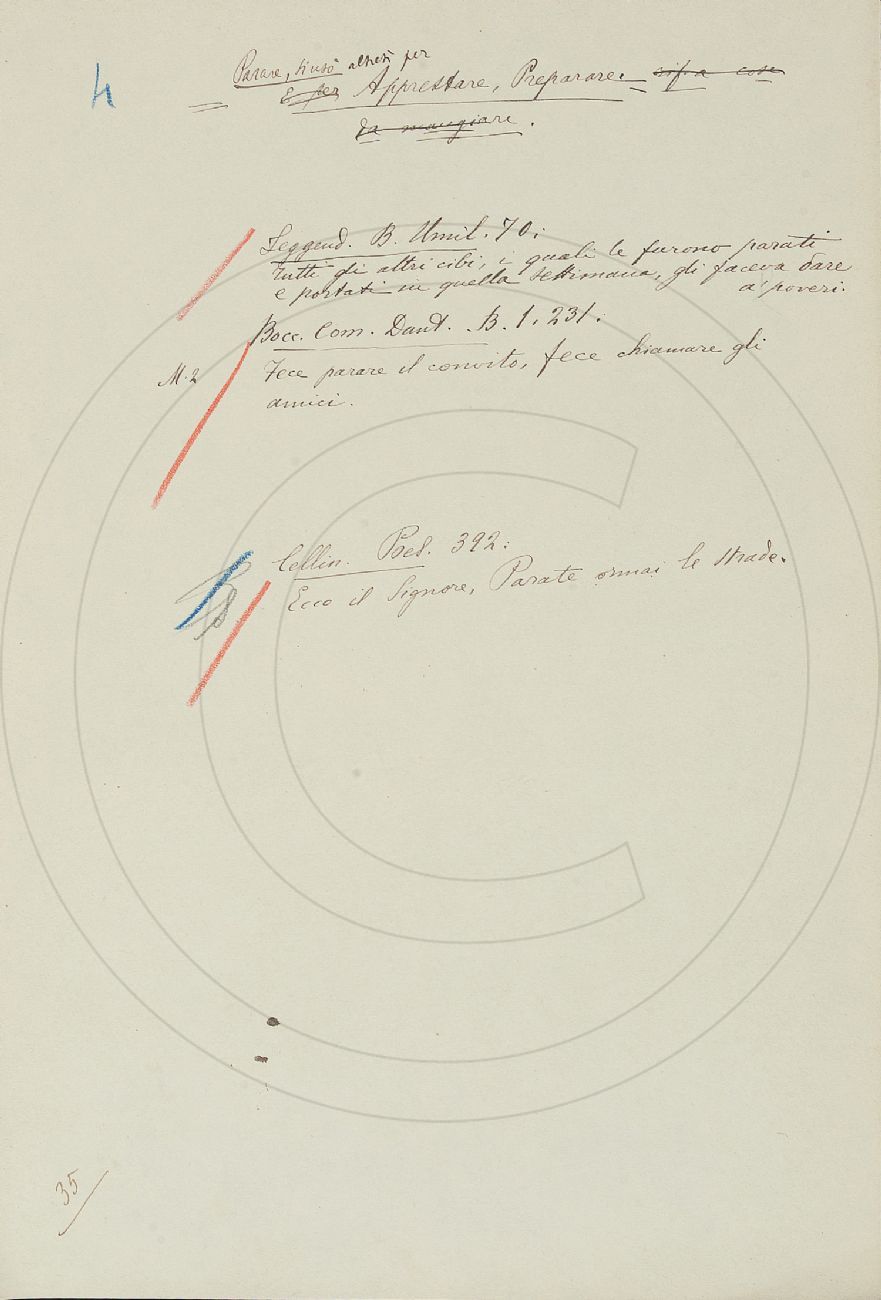 4
Parare, si usò altresì per
E per Apprestare, Preparare. rif. a cose
da mangiare.
Leggend. B. Umil. 70:
Tutti gli altri cibi, i quali le furono parati
e portati in quella settimana, gli faceva dare
a' poveri.
Bocc. Com. Dant. B. 1. 231:
M. 2
Fece parare il convito, fece chiamare gli
amici.
Cellin. Poes. 392:
Ecco il Signore, Parate ormai le strade.
35